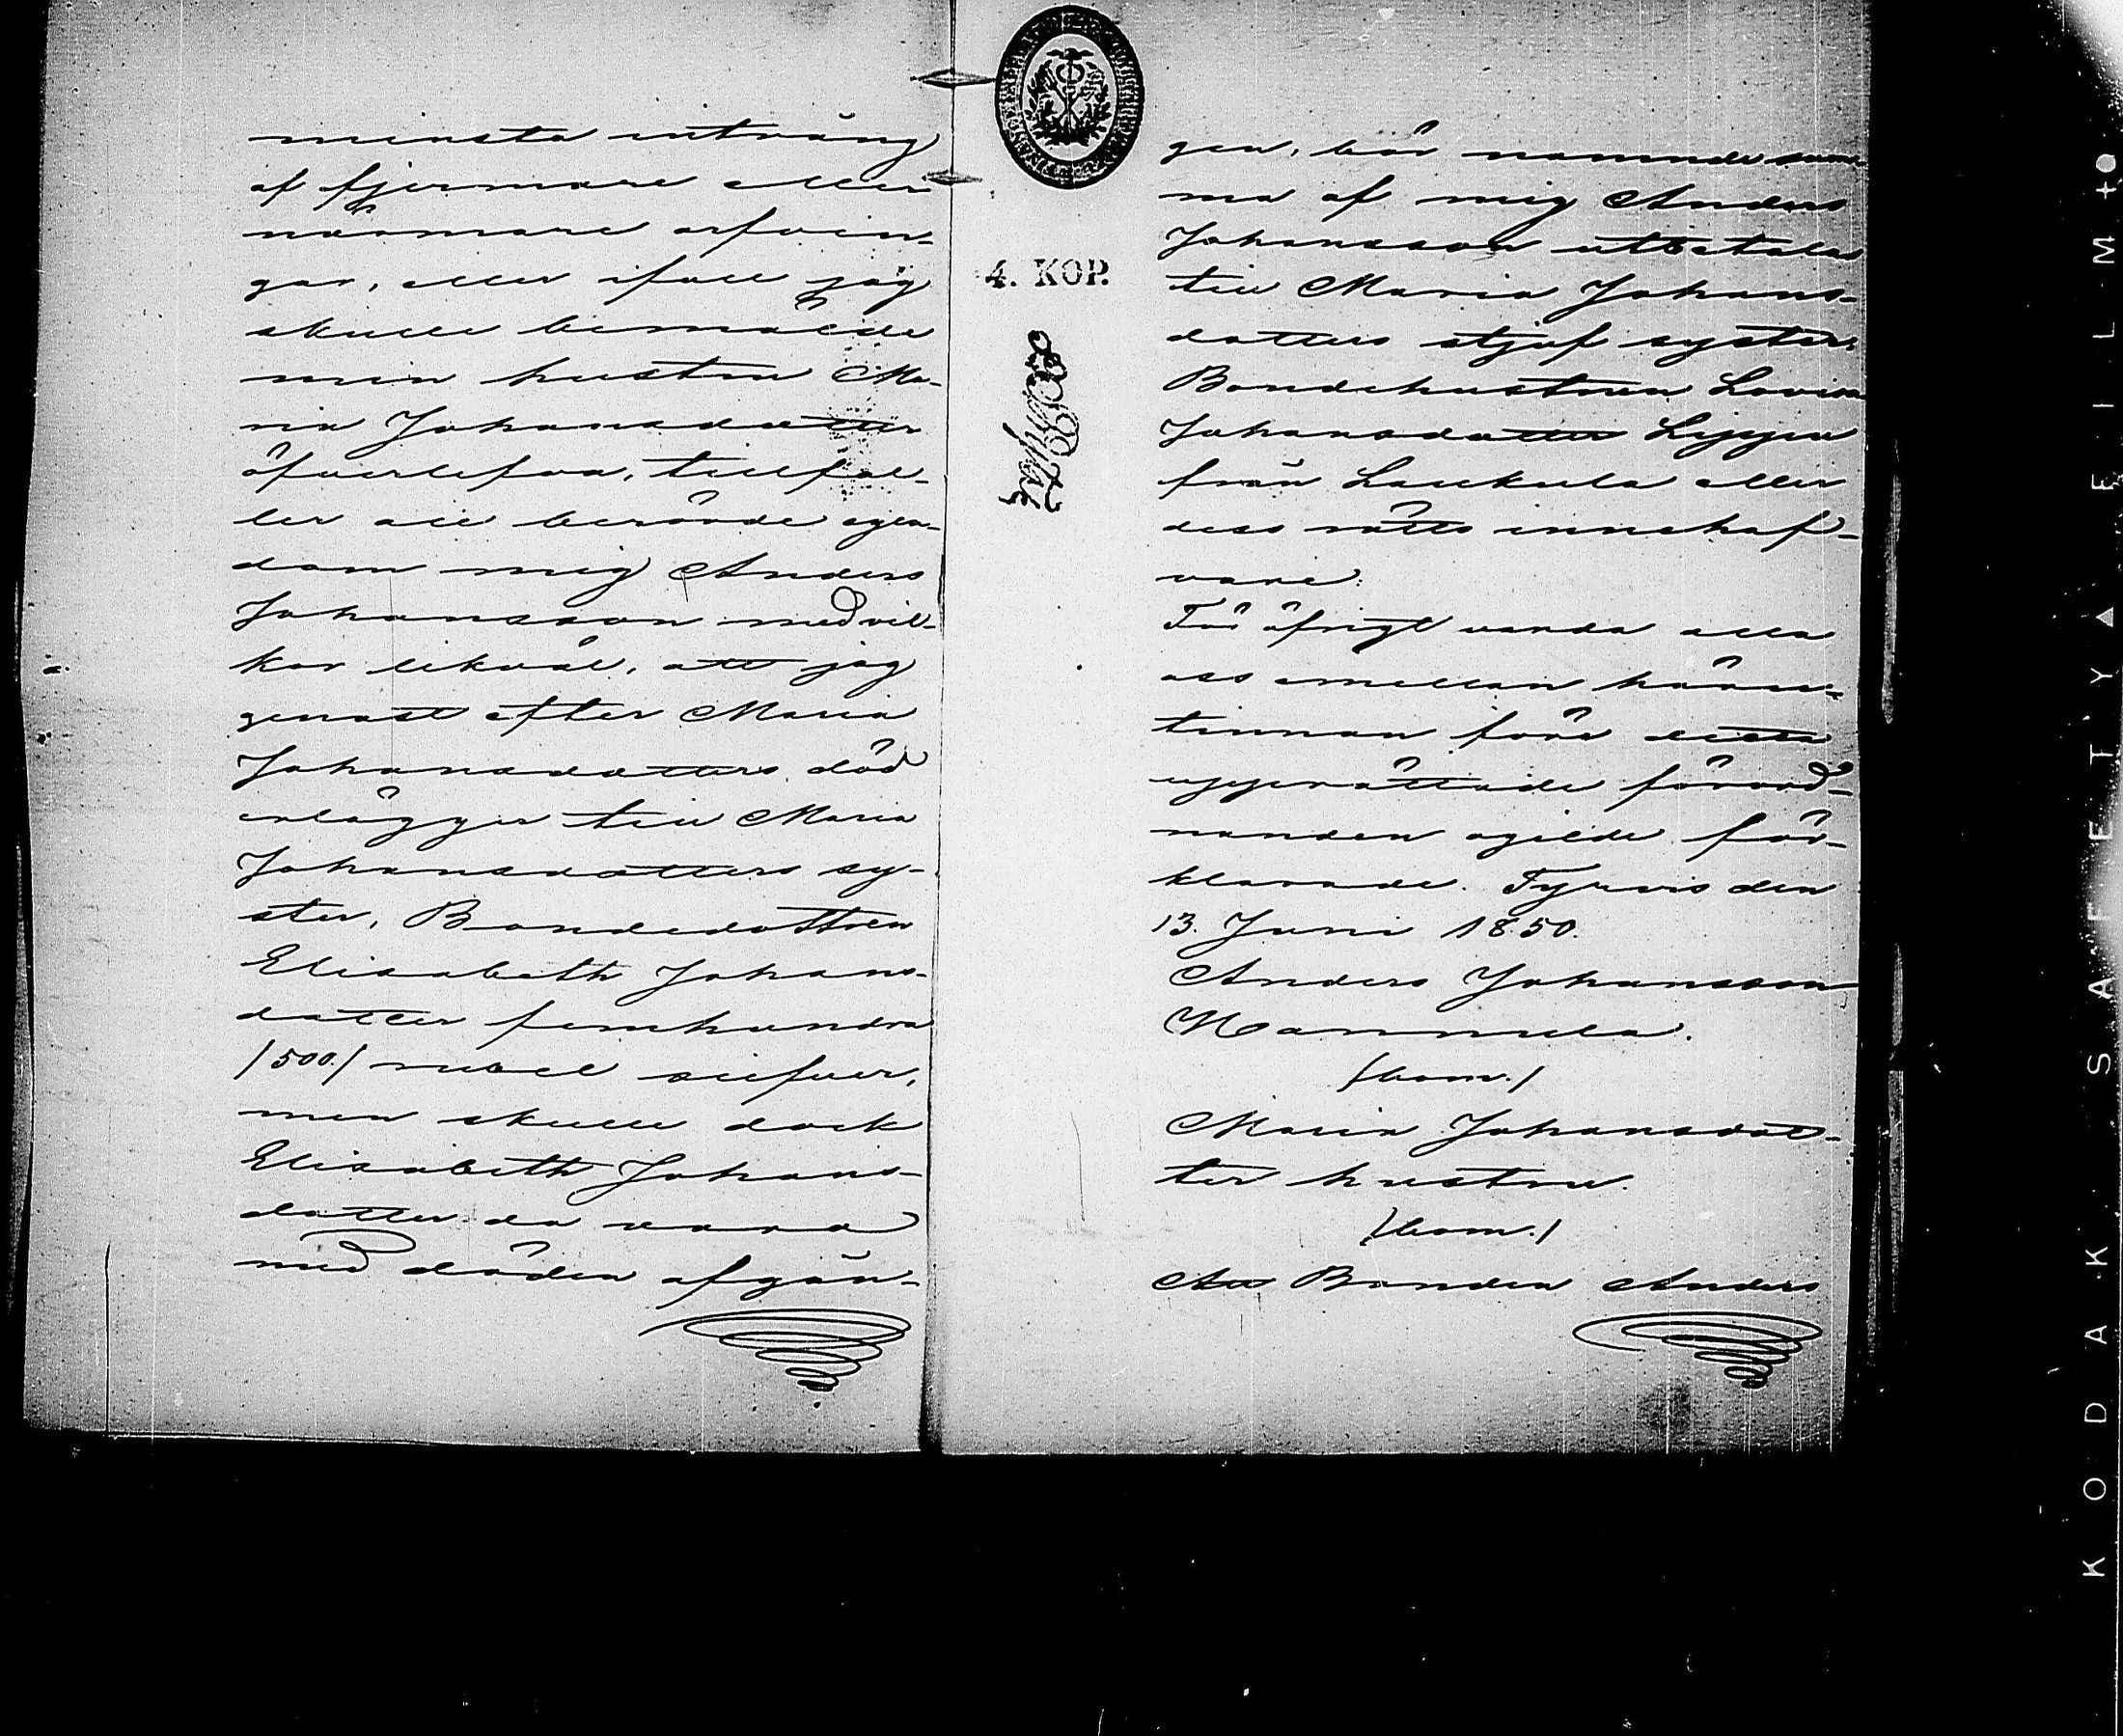 minsta intrång
af fjermare eller
närmare arfvin-
gar, eller ifall jag
skulle bemälde
min hustru Ma-
ria Johansdotter
öfverlefva, tillfal-
ler all berörde egen-
dom mig Anders
Johansson med vil-
kor likväl, att jag
genast efter Maria
Johansdotters död
erlägger till Maria
Johansdotters sy-
ster, Bondedottren
Elisabeth Johans-
dotter femhundra
/500./ rubel silfver,
men skulle dock
Elisabeth Johans-
dotter då vara
med döden afgån-
4. KOP.
gen, bör nämnde sum-
ma af mig Anders
Johansson utbetalas
till Maria Johans-
dotters stjuf syster,
Bondehustrun Lovisa
Johansdotter Leppä
från Laukula eller
dess rätts innehaf-
vare.
För öfrigt varda alla
oss emellan härut-
tinnan före detta
upprättade förord-
nanden ogilde för-
klarade. Tyrvis den
13. Juni 1850.
Anders Johansson
Mammula.
/bom./
Maria Johansdot-
ter hustru.
/bom./
Att Bonden Anders
KODAK SAFETY FILM